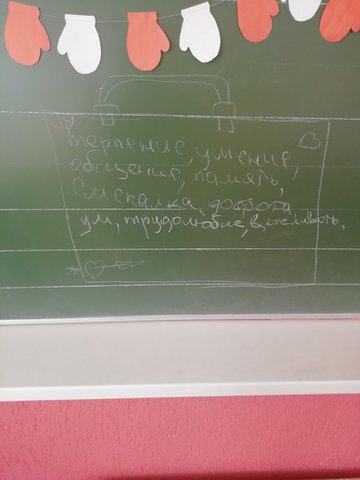 терпение, умения,
общения, память,
смекалка, доброта,
ум, трудолюбие, вежливать.